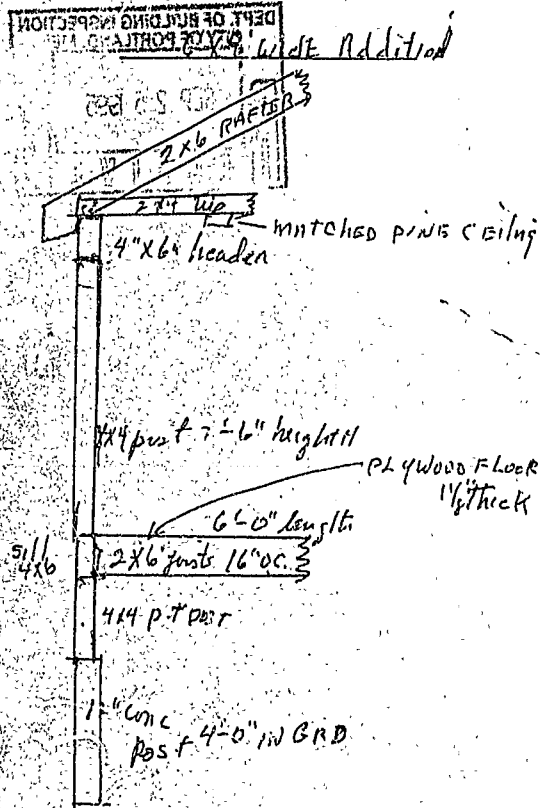 DEPT. OF BUILDING INSPECTION
CITY OF PORTLAND, ME
wide Addition
SEP 25
2x6 RAFTER
2x4
MATCHED PINE CEiling
4"x6" header
4x4 post 6" height
PLYWOOD FLOOR
1 1/8" Thick
6'-0" length
Sill
4x6
2x6 joists 16" OC.
4x4 p.t post
conc
post 4'-0" iN GRD